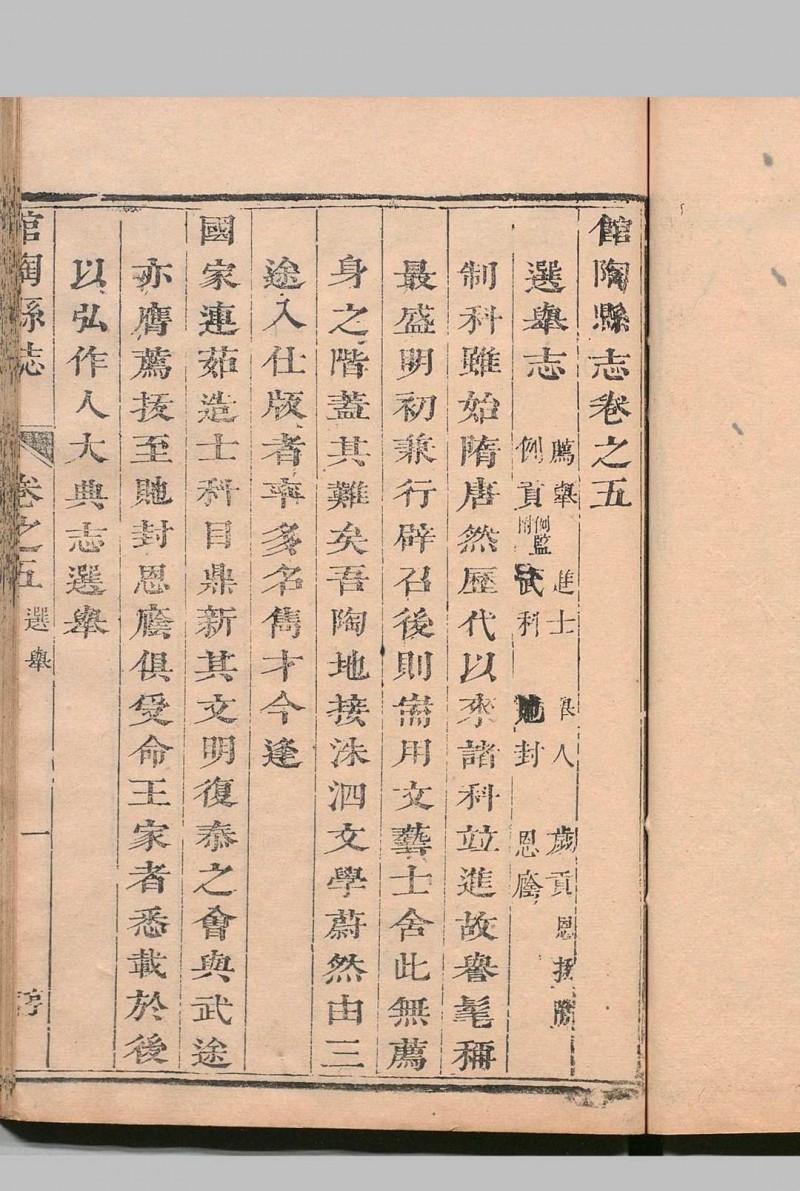 館陶縣志卷之五
選舉志 薦舉 進士 舉人 歲貢 恩拔 例貢 例監附 武科 貤封 恩廕
制科雖始隋唐然歷代以來諸科竝進故譽髦稱
最盛明初兼行辟召後則耑用文藝士舍此無薦
身之階蓋其難矣吾陶地接洙泗文學蔚然由三
途入仕版者率多名雋才今逢
國家連茹造士科目鼎新其文明復泰之會與武途
亦膺薦拔至貤封恩廕俱受命王家者悉載於後
以弘作人大典志選舉
館陶縣志 卷之五 選舉 一 序